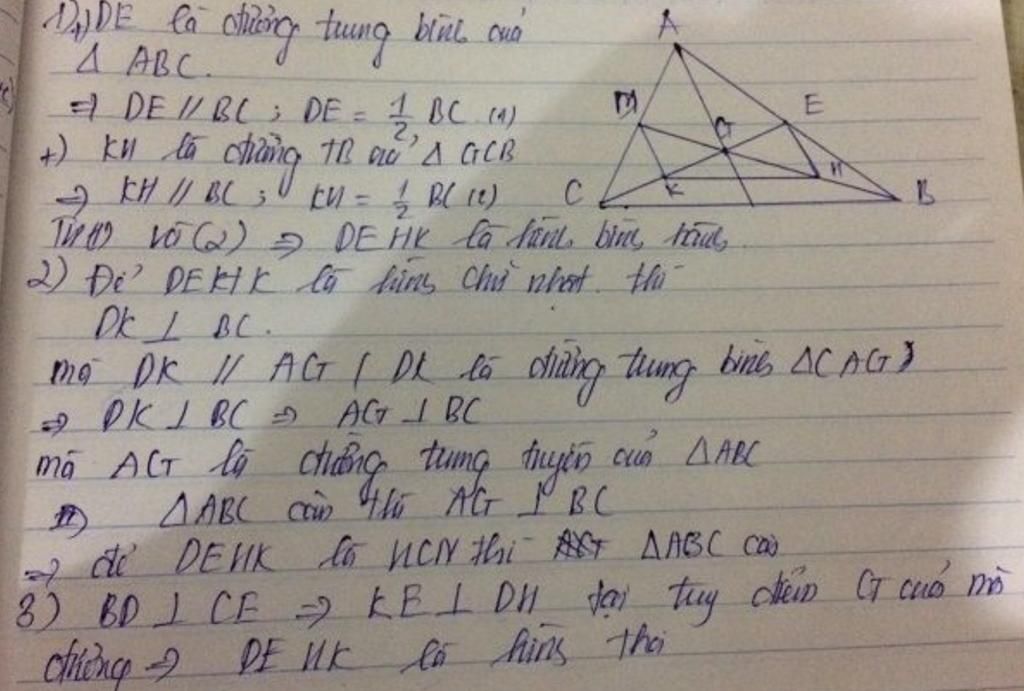 1) +) DE là đường trung bình của
Δ ABC.
⇒ DE // BC ; DE = 1/2 BC (1)
+) KH là đường TB của Δ GCB
⇒ KH // BC ; KH = 1/2 BC (2)
Từ (1) và (2) ⇒ DEHK là hình bình hành.
2) Để DEHK là hình chữ nhật thì
DK ⊥ BC.
mà DK // AG ( DK là đường trung bình ΔCAG)
⇒ DK ⊥ BC ⇒ AG ⊥ BC
mà AG là đường trung tuyến của ΔABC
⇒ ΔABC cân thì AG ⊥ BC
⇒ để DEHK là HCN thì ΔABC cân
3) BD ⊥ CE ⇒ KE ⊥ DH tại điểm G của mỗi
đường ⇒ DEHK là hình thoi
A
D
E
G
K
H
C
B